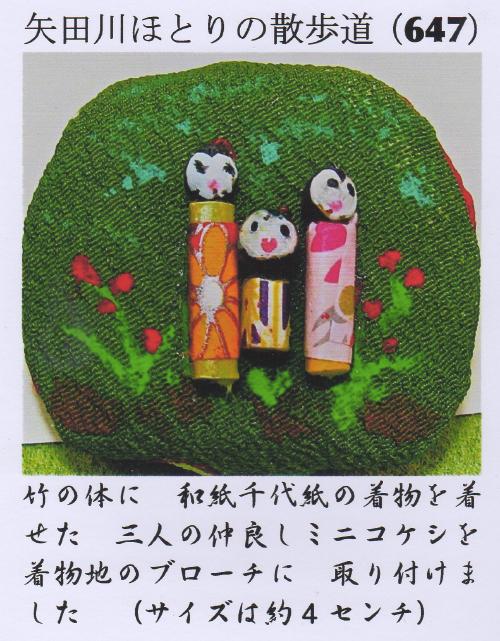 矢田川ほとりの散歩道（647）
竹の体に　和紙千代紙の着物を着
せた　三人の仲良しミニコケシを
着物地のブローチに　取り付けま
した　（サイズは約４センチ）